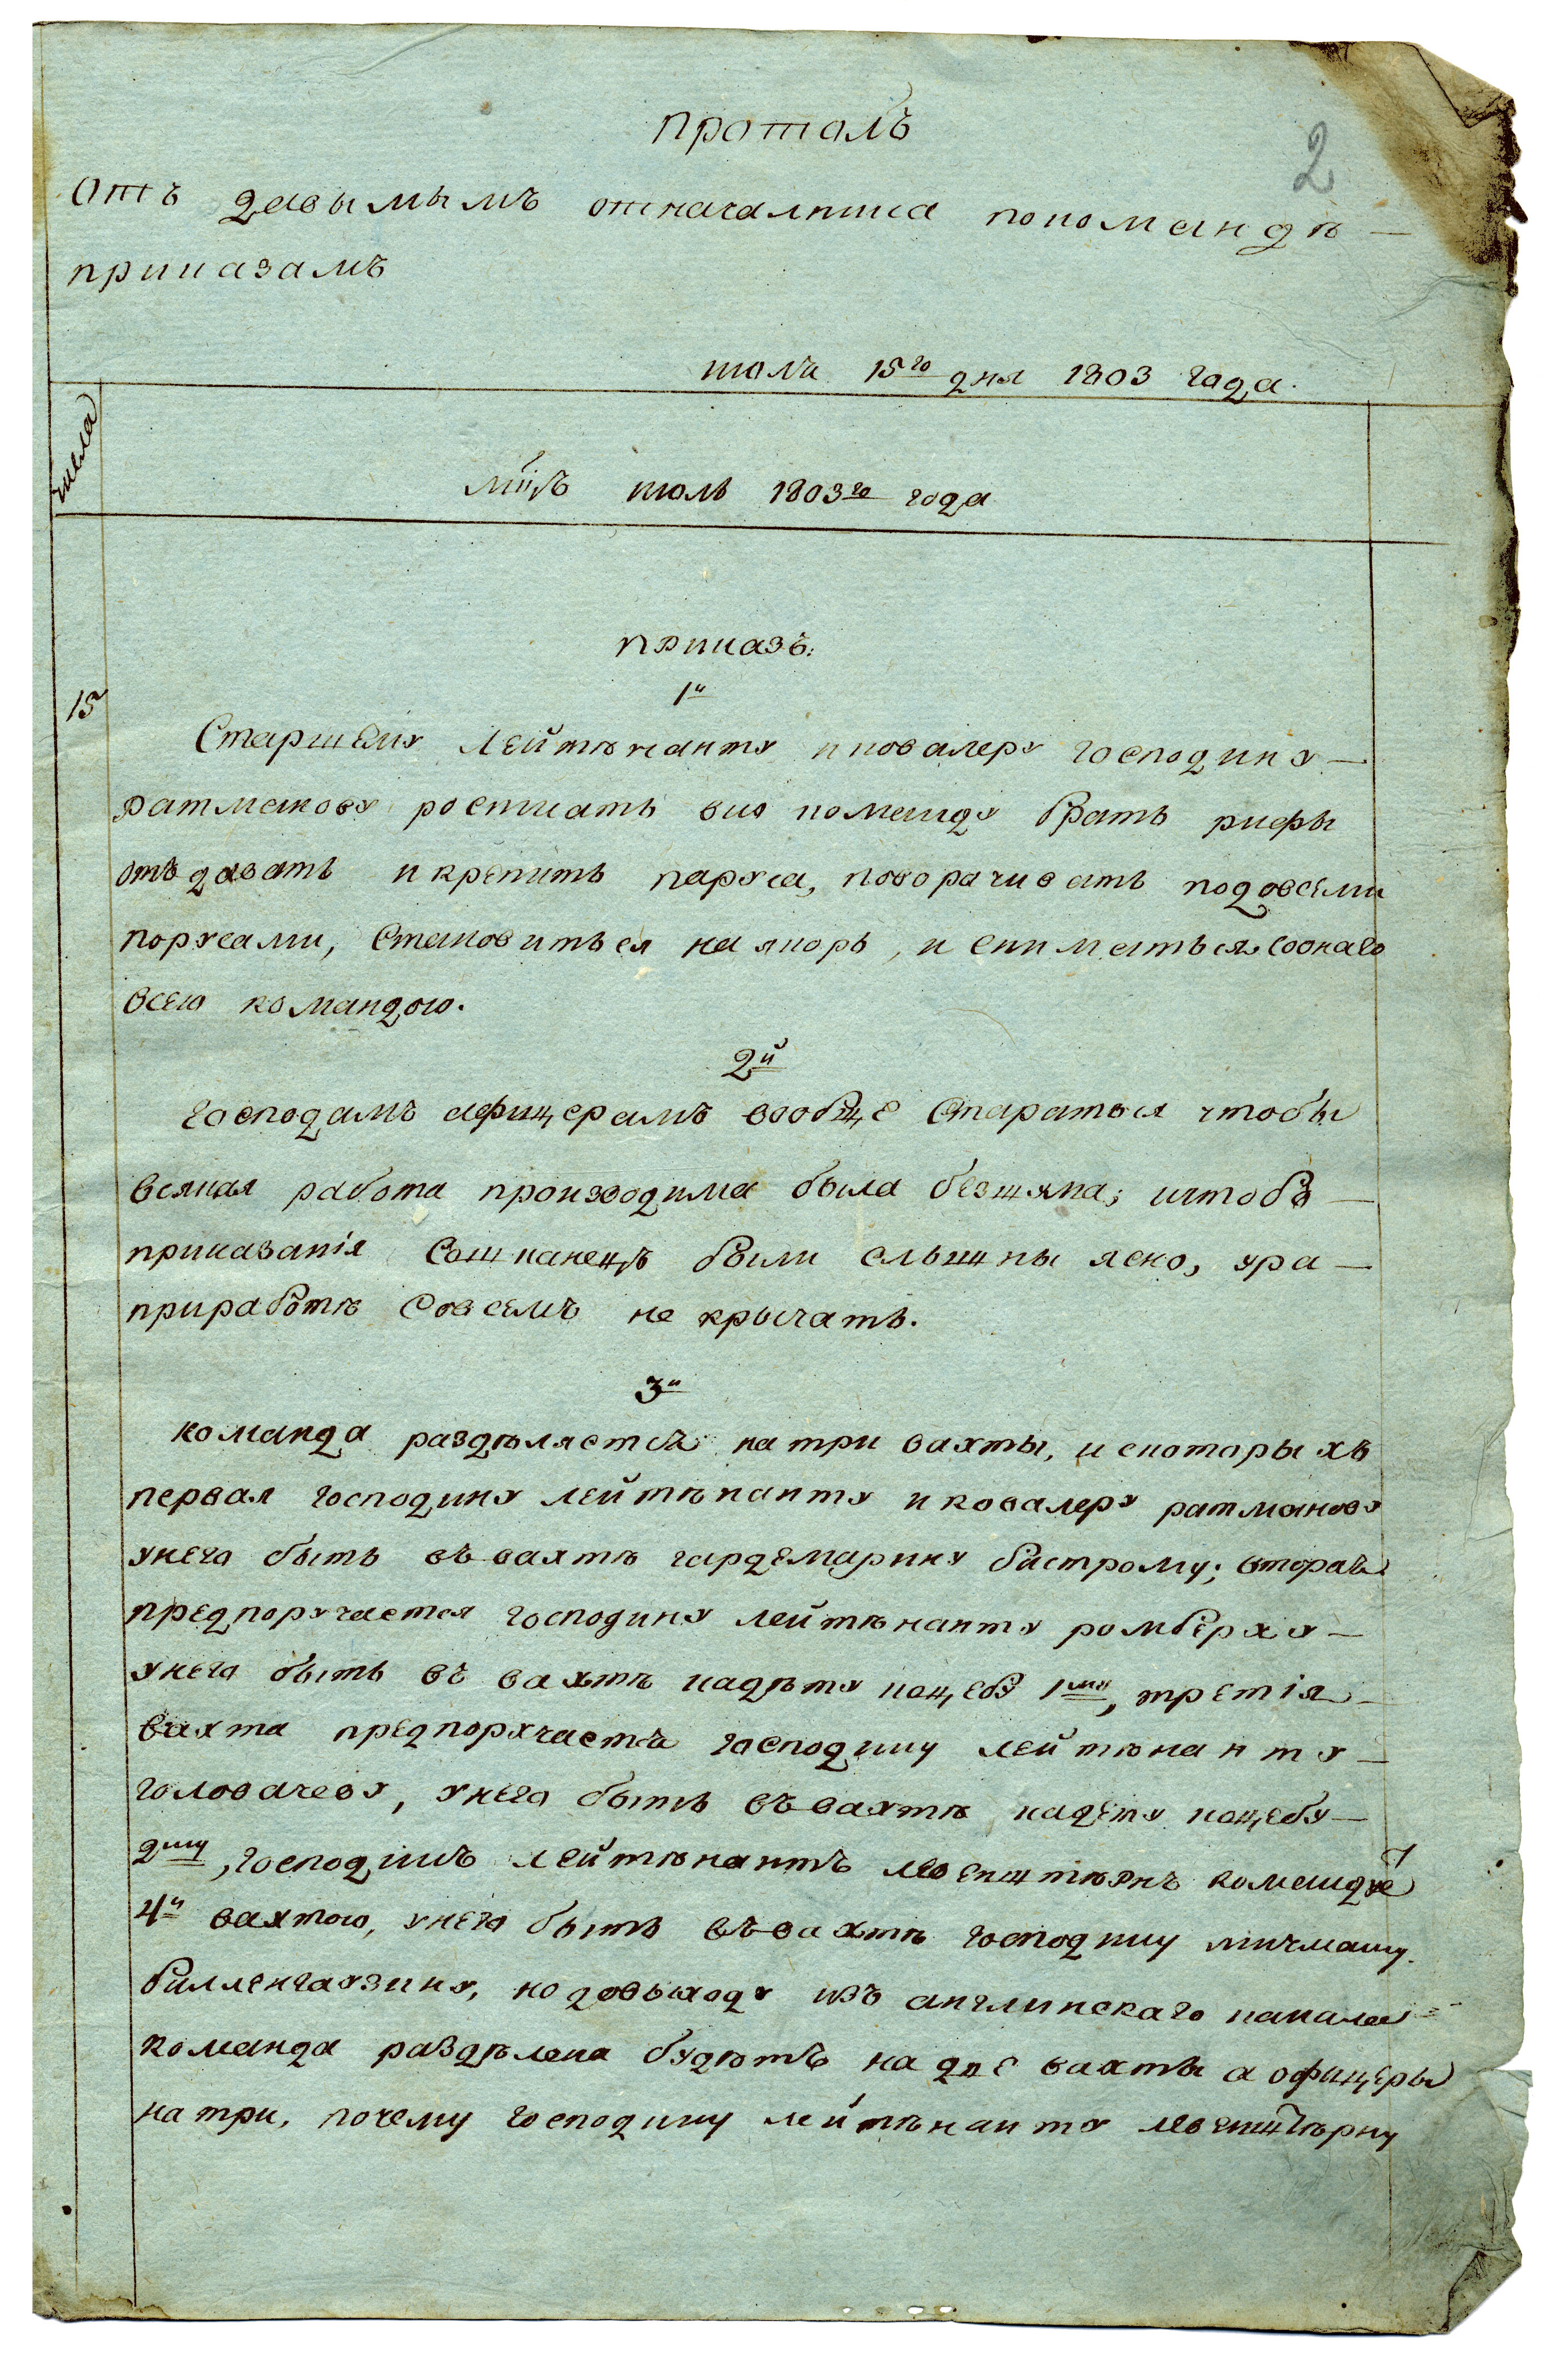 протолъ
2
Отъ давымымъ отначалника покомандѣ —
приказамъ
июля 15го дня 1803 года.
числа
мцъ июль 1803го года
приказъ:
15
1й
Старшему лейтѣнанту икавалеру господину —
ратманову росписать всю команду брать рифы
отъдавать икрепить паруса, поворачивать подовсеми
парусами, становиться наякорь, и сниматься сонаго
всею командою.
2й
господамъ афицерамъ вообще стараться чтобы
всякая работа производима была безшума; ичтобъ —
приказания сошканецъ были слышны ясно, ура —
приработѣ совсемъ не крычать.
3й
команда раздѣляется натри вахты, искоторыхъ
первая господину лейтѣнанту иковалеру ратманову
унего быть въвахтѣ гардемарину бистрому; вторая
предпоручается господину лейтѣнанту ромберху —
унего быть въ вахтѣ кадѣту коцебу 1му, третія —
вахта предпоручается господину лейтѣнанту —
головачеву, унего быть въвахтѣ кадету коцебу —
2му, господинъ лейтѣнантъ левенштѣрнъ командуетъ
4й вахтою, унего быть въвахтѣ господину мичману
биллингаузину, нодовыходу изъ англинскаго канала =
команда раздѣлена будѣтъ надве вахты а офицеры
натри, почему господину лейтѣнанту левенштѣрну